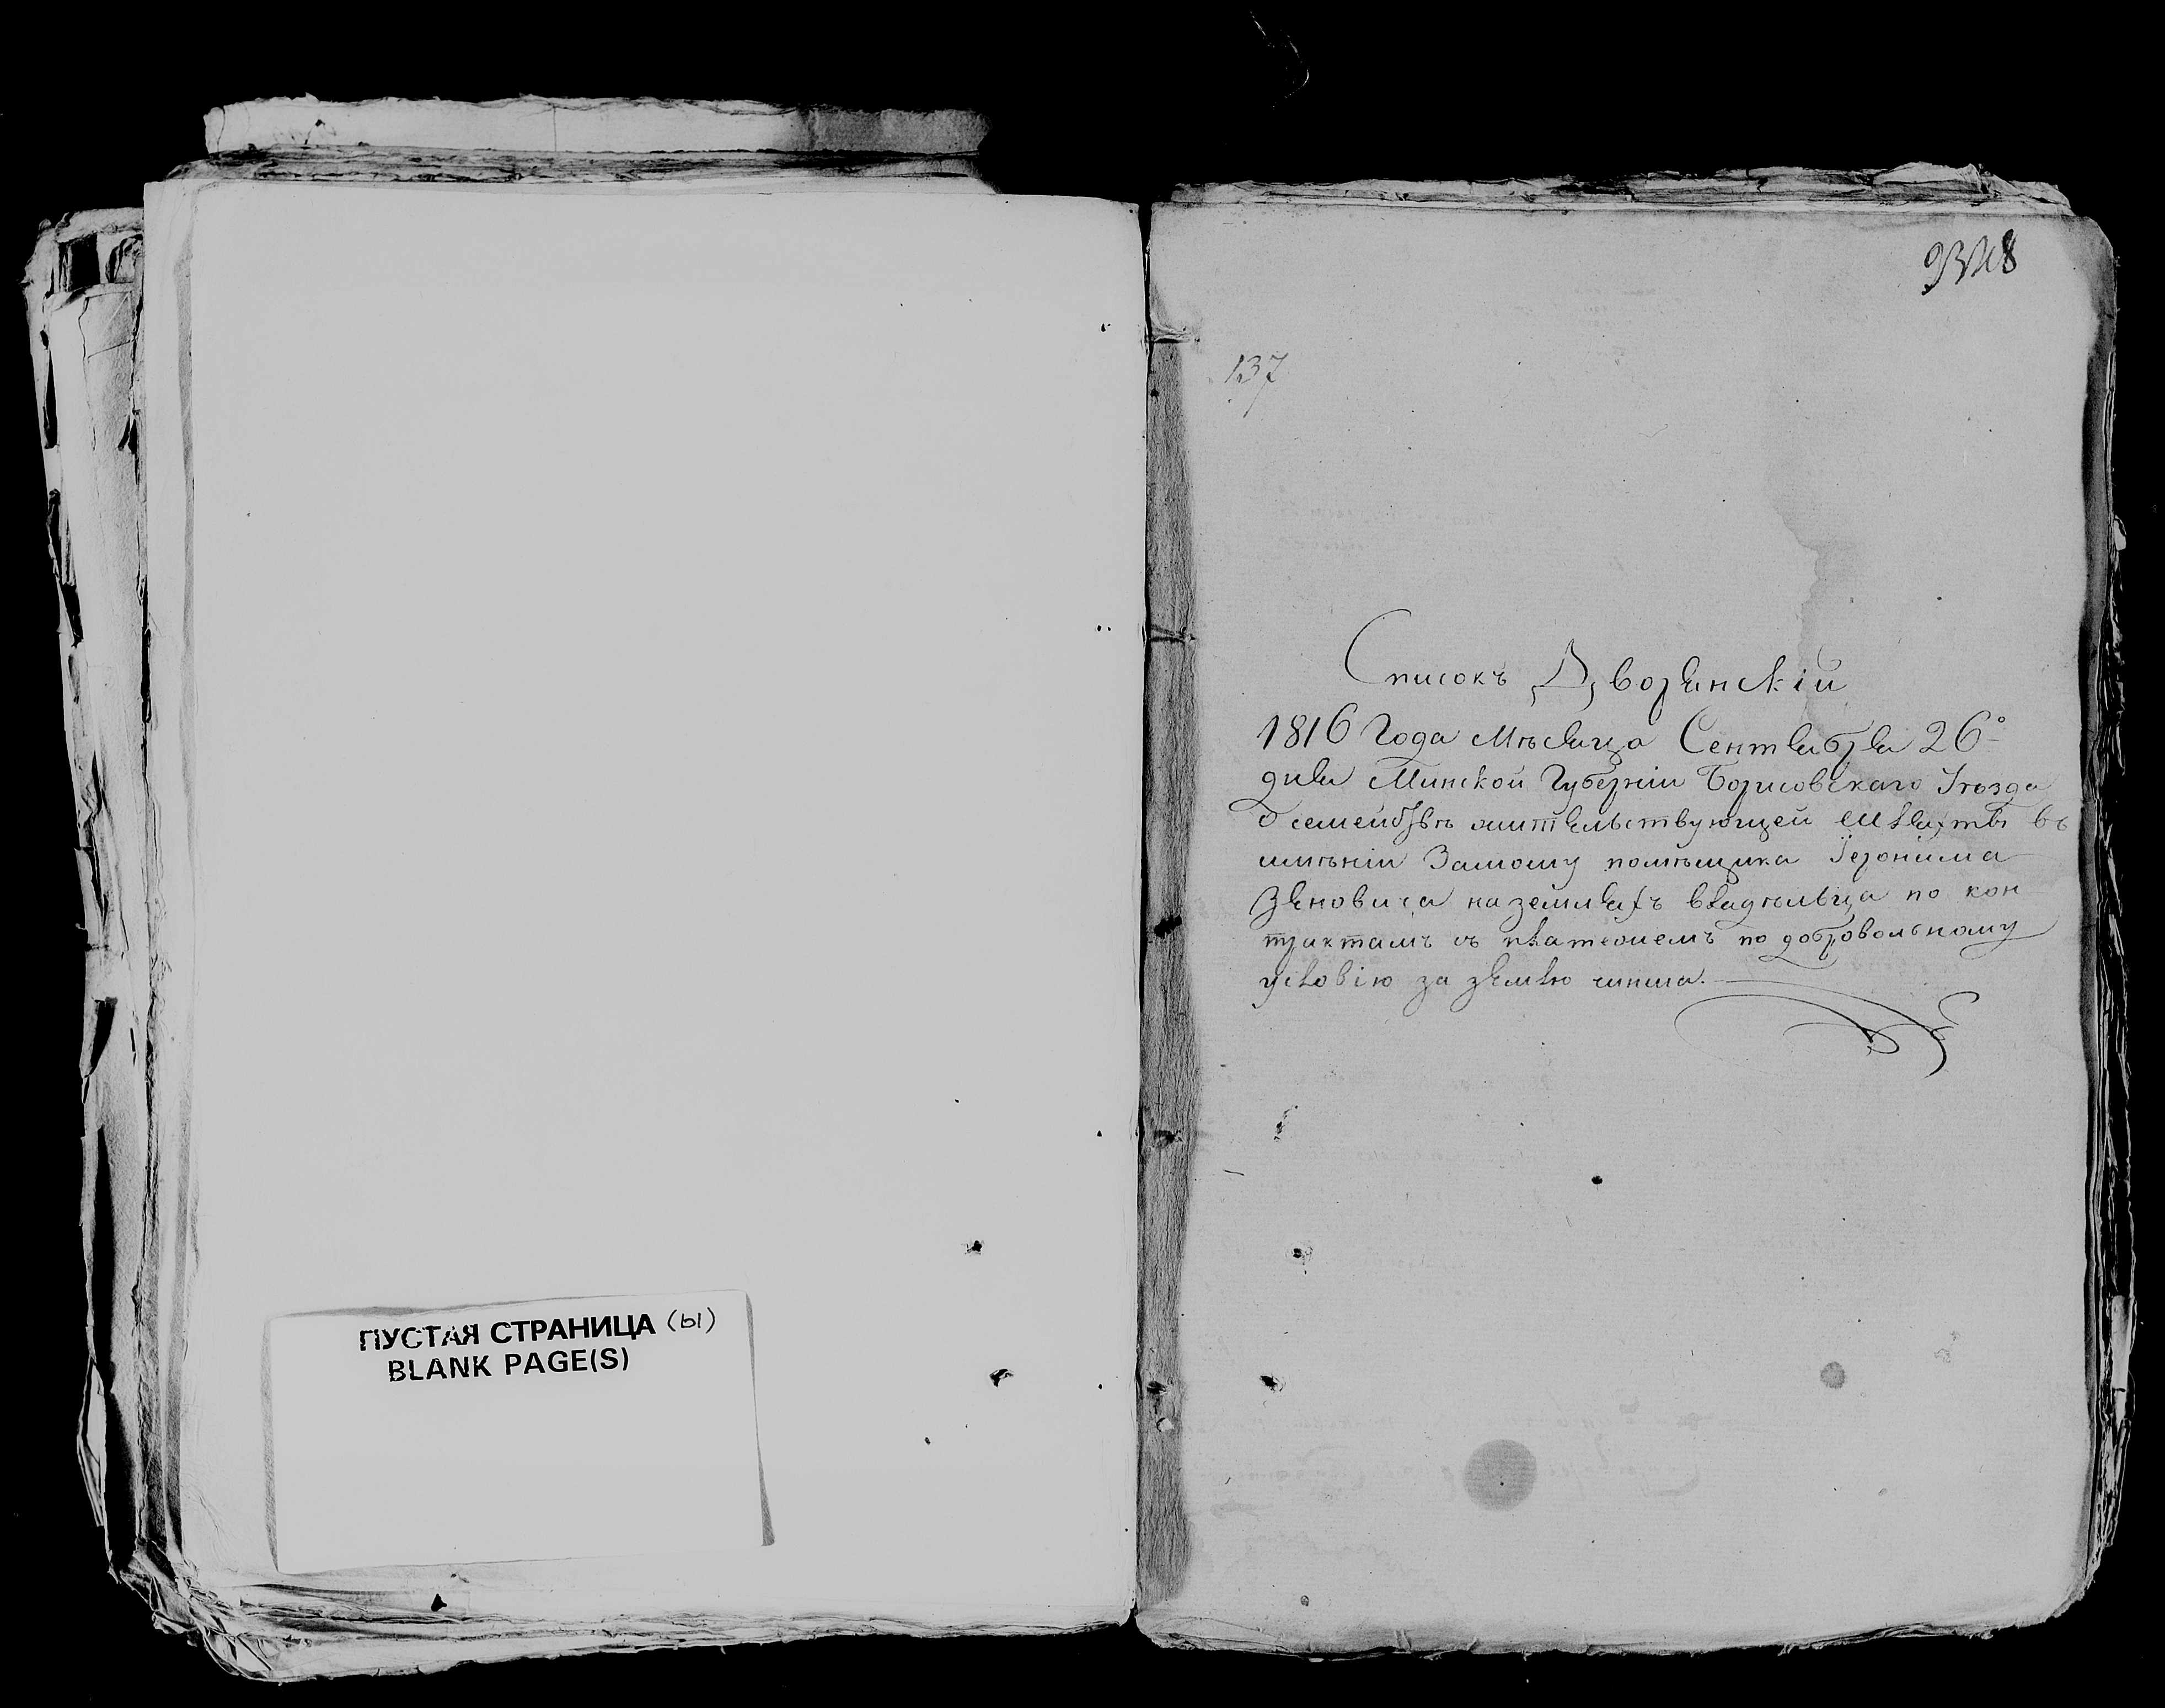 ПУСТАЯ СТРАНИЦА (ы)
BLANK PAGE(S)
137
Списокъ Дворянскій
1816 Года Мѣсяца Сентября 26º
дня Минской Губерніи Борисовскаго Уѣзда
О семействѣ жительствующей Шляхты въ
имѣніи Замошу помѣщика Іеронима
Зеновича на земляхъ владѣльца по кон
трактамъ съ платежемъ по добровольному
условію за землю чинша.